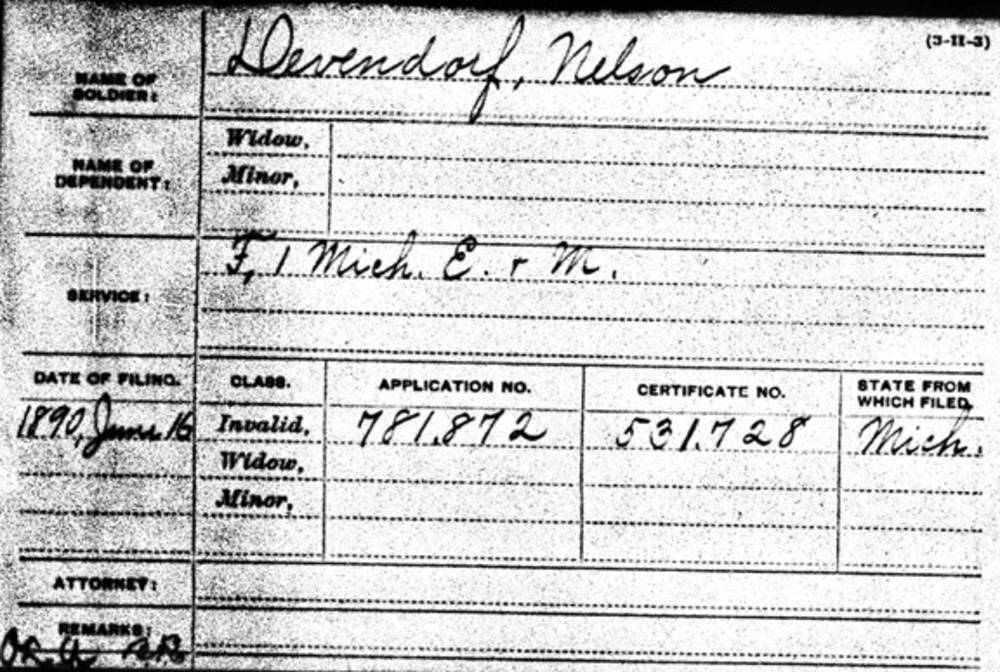 (3-11-3)
NAME OF SOLDIER: Devendorf, Nelson
NAME OF DEPENDENT: Widow,
Minor,
SERVICE: F, 1 Mich. E. + M.
DATE OF FILING. CLASS. APPLICATION NO. CERTIFICATE NO. STATE FROM WHICH FILED.
1890, June 16 Invalid, 781.872 531.728 Mich.
Widow,
Minor,
ATTORNEY:
REMARKS: